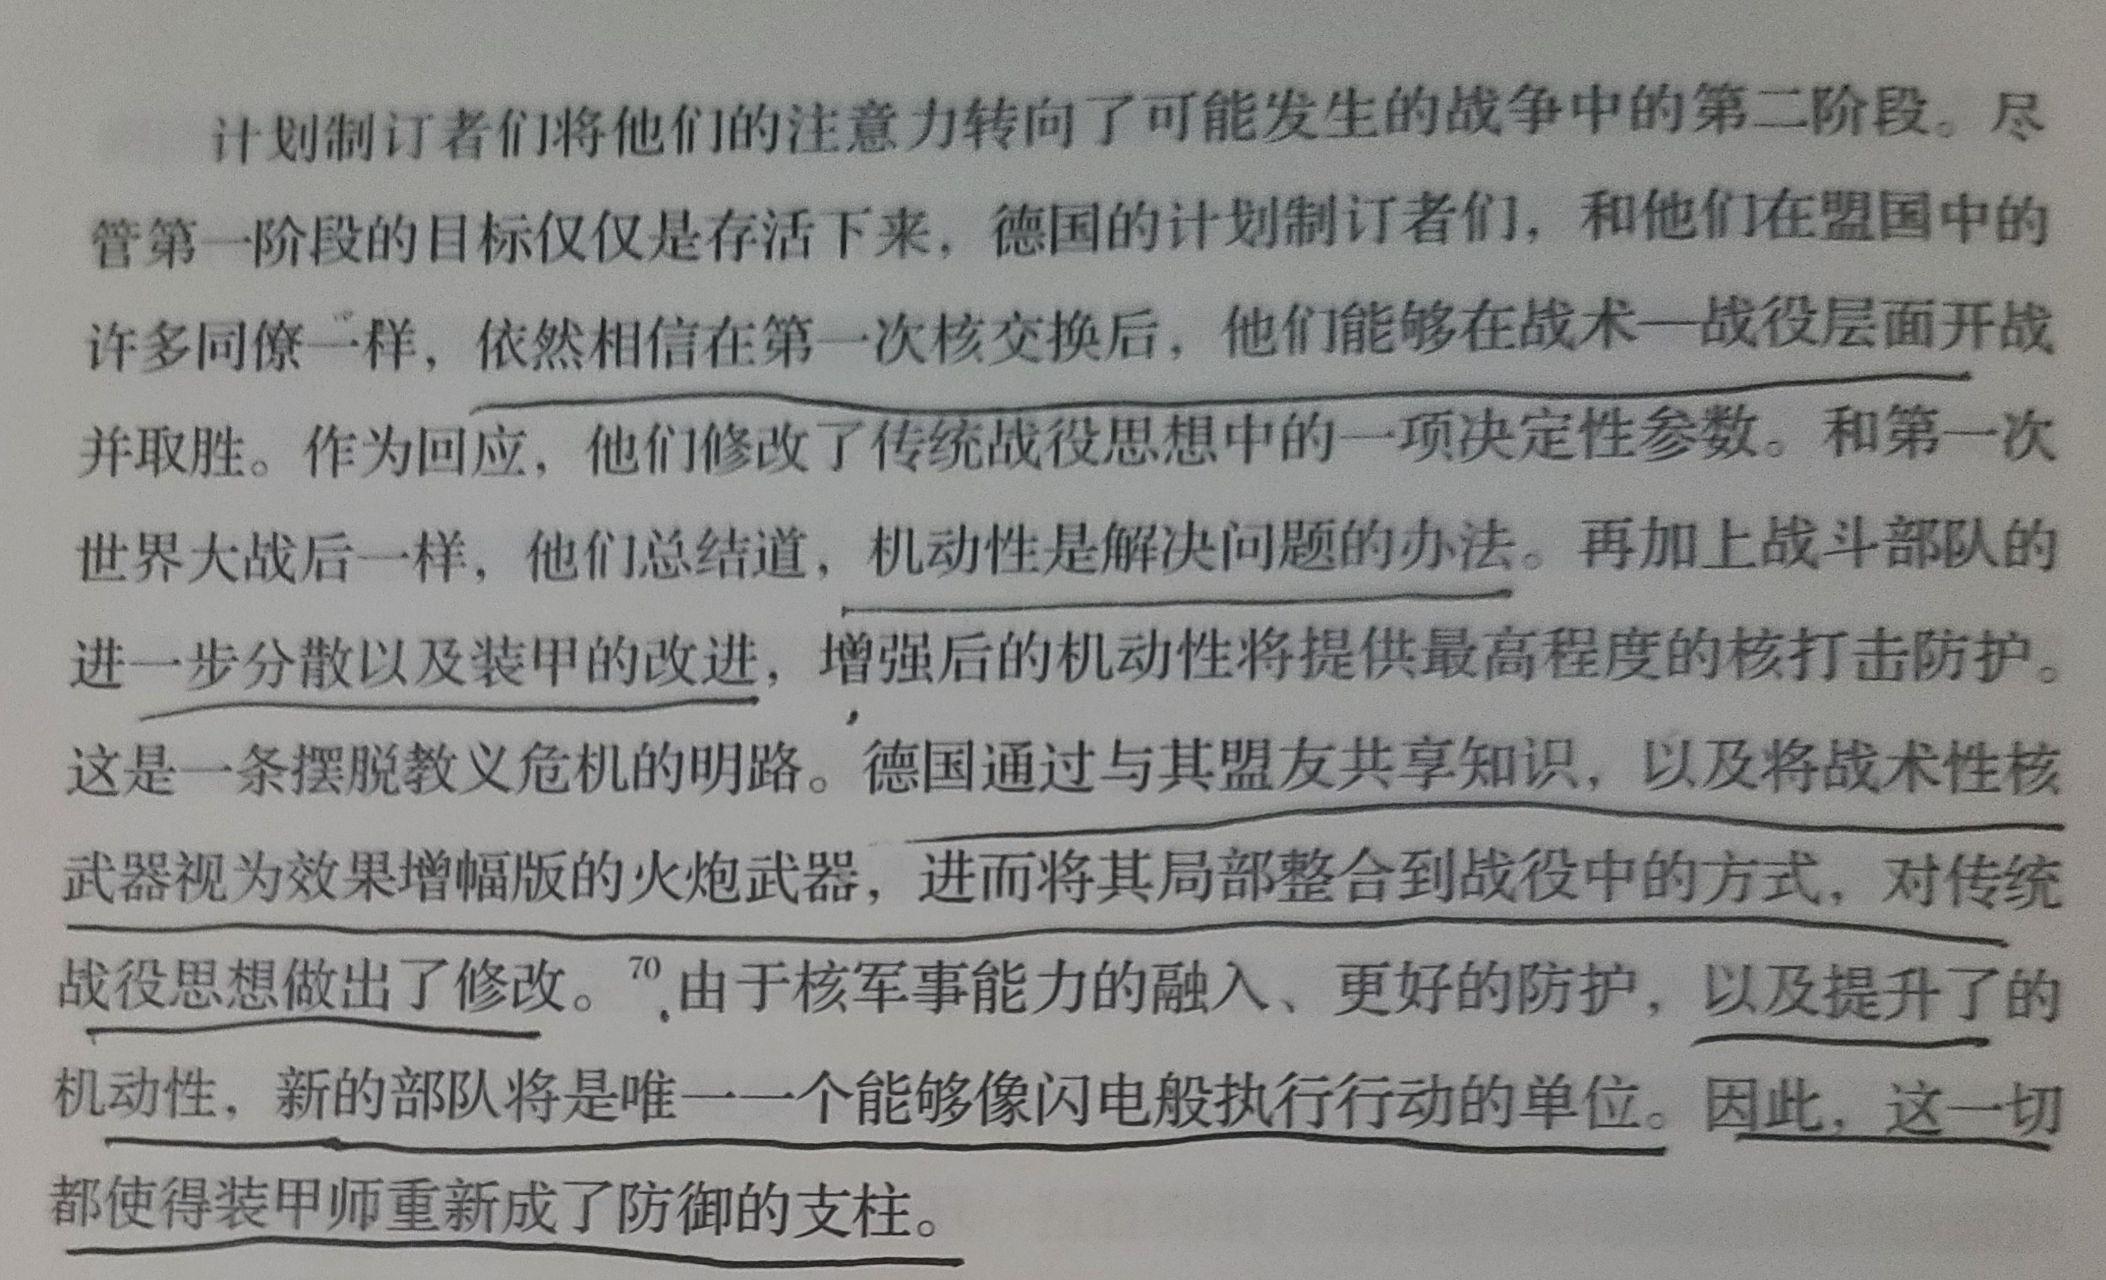 计划制订者们将他们的注意力转向了可能发生的战争中的第二阶段。尽
管第一阶段的目标仅仅是存活下来，德国的计划制订者们，和他们在盟国中的
许多同僚一样，依然相信在第一次核交换后，他们能够在战术—战役层面开战
并取胜。作为回应，他们修改了传统战役思想中的一项决定性参数。和第一次
世界大战后一样，他们总结道，机动性是解决问题的办法。再加上战斗部队的
进一步分散以及装甲的改进，增强后的机动性将提供最高程度的核打击防护。
这是一条摆脱教义危机的明路。德国通过与其盟友共享知识，以及将战术性核
武器视为效果增幅版的火炮武器，进而将其局部整合到战役中的方式，对传统
战役思想做出了修改。70 由于核军事能力的融入、更好的防护，以及提升了的
机动性，新的部队将是唯一一个能够像闪电般执行行动的单位。因此，这一切
都使得装甲师重新成了防御的支柱。